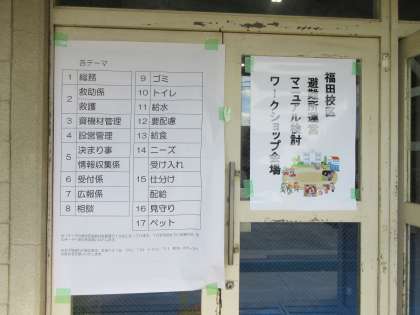 各テーマ
1 総務
2 救助係
救護
3 資機材管理
4 設営管理
5 決まり事
情報収集係
6 受付係
7 広報係
8 相談
9 ゴミ
10 トイレ
11 給水
12 要配慮
13 給食
14 ニーズ
受け入れ
15 仕分け
配給
16 見守り
17 ペット
福田校区
避難所運営
マニュアル検討
ワークショップ会場